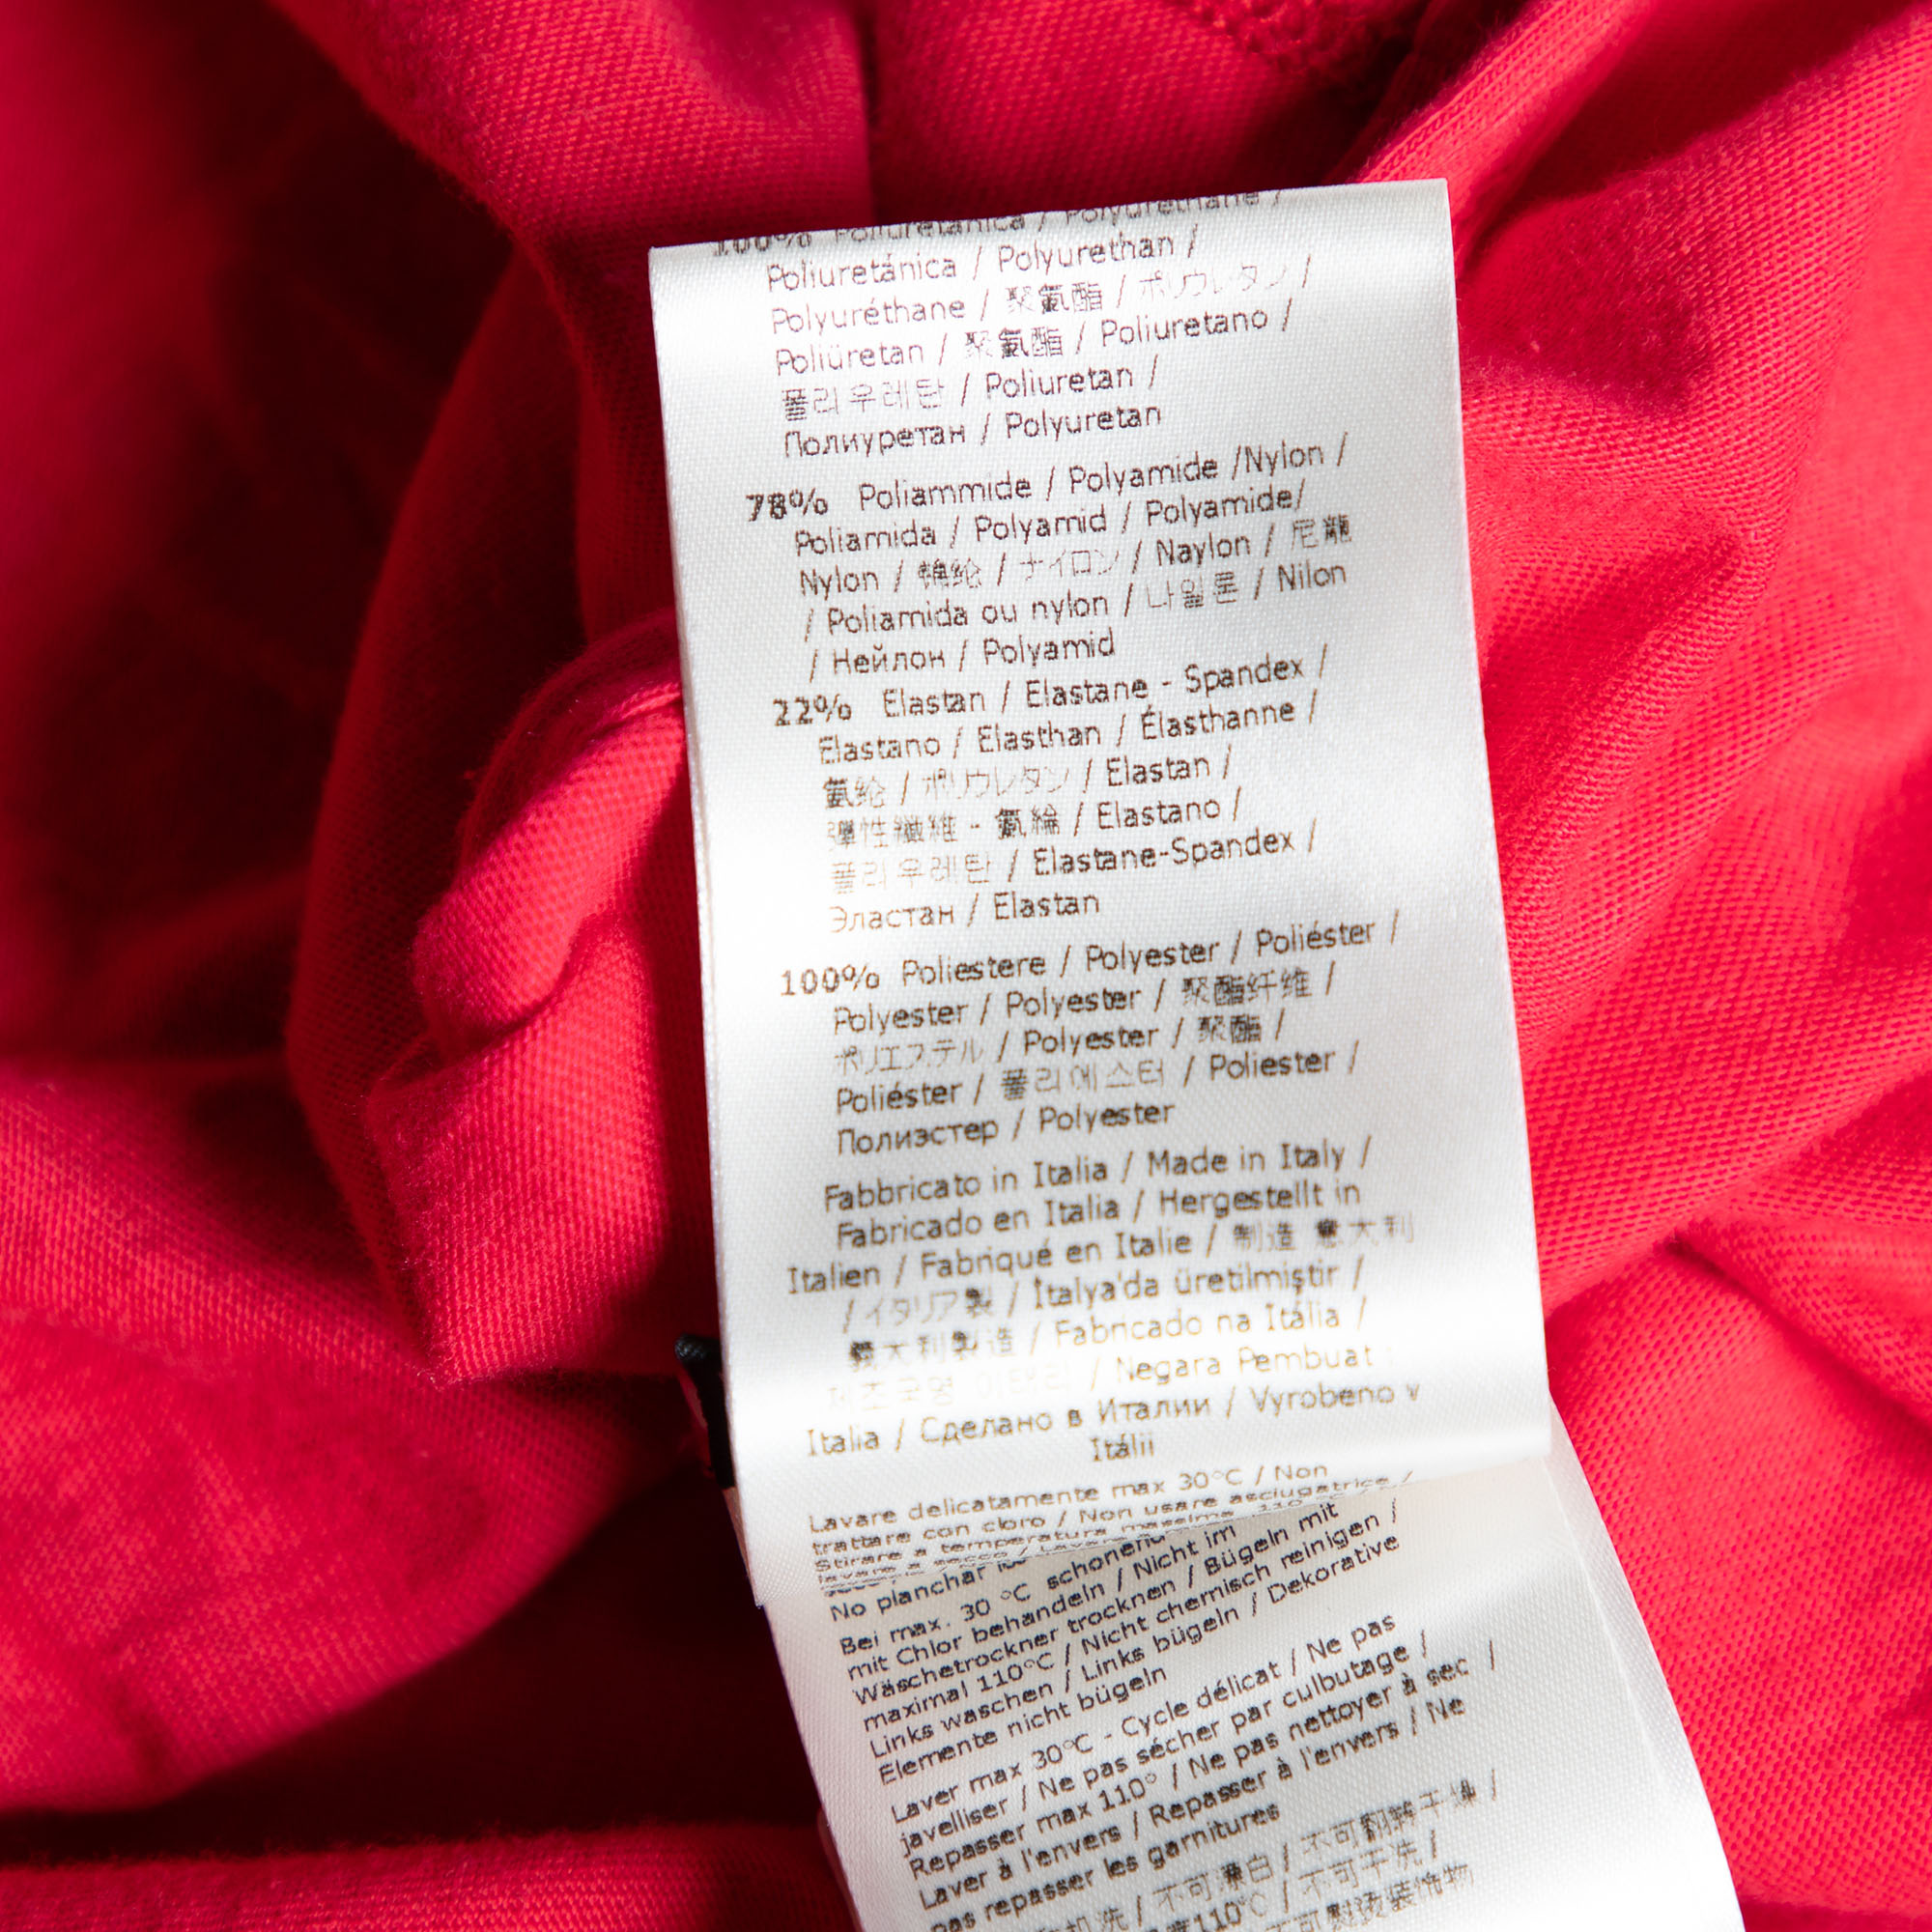 100% Poliuretanica / Polyurethane /
Poliuretánica / Polyurethan /
Polyuréthane / 聚氨酯 / ポリウレタン /
Poliüretan / 聚氨酯 / Poliuretano /
폴리우레탄 / Poliuretan /
Полиуретан / Polyuretan
78% Poliammide / Polyamide /Nylon /
Poliamida / Polyamid / Polyamide/
Nylon / 锦纶 / ナイロン / Naylon / 尼龍
/ Poliamida ou nylon / 나일론 / Nilon
/ Нейлон / Polyamid
22% Elastan / Elastane - Spandex /
Elastano / Elasthan / Élasthanne /
氨纶 / ポリウレタン / Elastan /
彈性纖維 - 氨綸 / Elastano /
폴리우레탄 / Elastane-Spandex /
Эластан / Elastan
100% Poliestere / Polyester / Poliéster /
Polyester / Polyester / 聚酯纤维 /
ポリエステル / Polyester / 聚酯 /
Poliéster / 폴리에스터 / Poliester /
Полиэстер / Polyester
Fabbricato in Italia / Made in Italy /
Fabricado en Italia / Hergestellt in
Italien / Fabriqué en Italie / 制造 意大利
/ イタリア製 / İtalya'da üretilmiştir /
義大利製造 / Fabricado na Itália /
제조국명 이태리 / Negara Pembuat :
Italia / Сделано в Италии / Vyrobeno v
Itálii
Lavare delicatamente max 30°C / Non
trattare con cloro / Non usare asciugatrice /
Stirare a temperatura massima 110
No planchar
Bei max. 30 °C schonend
mit Chlor behandeln / Nicht im
Wäschetrockner trocknen / Bügeln mit
maximal 110°C / Nicht chemisch reinigen /
Links waschen / Links bügeln / Dekorative
Elemente nicht bügeln
Laver max 30°C - Cycle délicat / Ne pas
javelliser / Ne pas sécher par culbutage /
Repasser max 110° / Ne pas nettoyer à sec /
Laver à l'envers / Repasser à l'envers / Ne
pas repasser les garnitures
机洗 / 不可漂白 / 不可翻转干燥 /
110°C / 不可干洗 /
不可熨烫装饰物